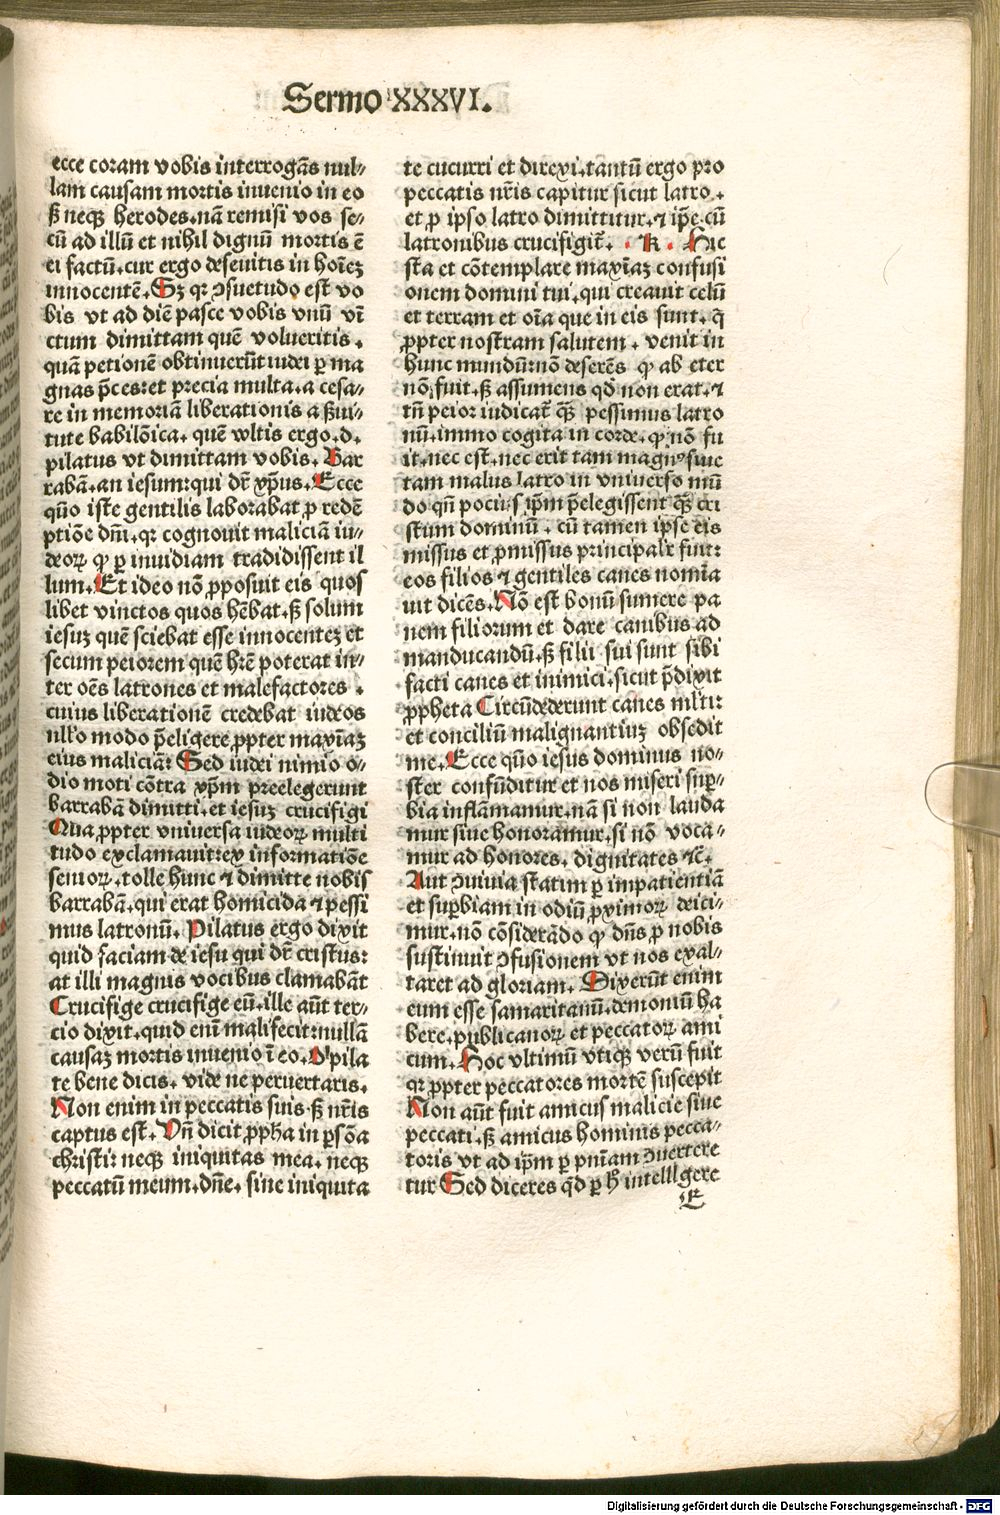 Sermo XXXVI.
ecce coram vobis interrogãs nul⸗
lam causam mortis inuenio in eo
ß neqꝫ herodes. nã remisi vos se⸗
cũ ad illũ et nihil dignũ mortis ẽ
ei factũ. cur ergo deseuitis in hoĩeꝫ
innocentẽ. Sꝫ qꝛ ↄsuetudo est vo
bis vt ad diẽ pasce vobis vnũ vĩ
ctum dimittam quẽ volueritis.
quã petionẽ obtinuerũt iudei ꝑ ma
gnas p̃ces: et precia multa. a cesa⸗
re in memoriã liberationis a ßui⸗
tute babilõica. quẽ vultis ergo. d.
pilatus vt dimittam vobis. Bar
rabã. an iesum: qui dr̃ xp̃us. Ecce
quõ iste gentilis laborabat ꝓ redẽ
ptiõe dñi. qꝛ cognouit maliciã iu⸗
deoꝝ ꝙ ꝑ inuidiam tradidissent il
lum. Et ideo nõ ꝓposuit eis quos
libet vinctos quos hẽbat. ß solum
iesuꝫ quẽ sciebat esse innocenteꝫ et
secum peiorem quẽ hr̃e poterat in⸗
ter oẽs latrones et malefactores.
cuius liberationẽ credebat iudeos
nll'o modo p̃eligere ꝓpter maxĩaꝫ
eius maliciã: Sed iudei nimio o⸗
dio moti cõtra xp̃m preelegerunt
barrabã dimitti. et iesuꝫ crucifigi
Qua ꝓpter vniuersa iudeoꝝ multi
tudo exclamauit: ex informatiõe
senioꝝ. tolle hunc ⁊ dimitte nobis
barrabã. qui erat homicida ⁊ pessi
mus latronũ. Pilatus ergo dixit
quid faciam de iesu qui dr̃ cristus:
at illi magnis vocibus clamabãt
Crucifige crucifige eũ. ille aũt ter⸗
cio dixit. quid eni᷉ mali fecit: nullã
causaꝫ mortis inuenio ĩ eo. O pila
te bene dicis. vide ne peruertaris.
Non enim in peccatis suis ß nr̃is
captus est. Vñ dicit ꝓpha in ꝑsõa
christi: neqꝫ iniquitas mea. neqꝫ
peccatũ meum. dñe. sine iniquita
te cucurri et direxi. tantũ ergo pro
peccatis nr̃is capitur sicut latro.
et ꝓ ipso latro dimittitur. ⁊ ip̃e cũ
latronibus crucifigit̃. . K . Hic
sta et cõtemplare maxĩaꝫ confusi
onem domini tui. qui creauit celũ
et terram et oĩa que in eis sunt. q̃
ꝓpter nostram salutem. venit in
hunc mundũ: nõ deserẽs ꝙ ab eter
nõ fuit. ß assumens qd̃ non erat. ⁊
tñ peior iudicat̃ qͣꝫ pessimus latro
nũ. immo cogita in corde. ꝙ nõ fu
it. nec est. nec erit tam magnꝰ siue
tam malus latro in vniuerso mũ
do qñ pociꝰs ip̃m p̃elegissent qͣꝫ cri
stum dominũ. cũ tamen ipse eis
missus et ꝓmissus principalr̃ fuit:
eos filios ⁊ gentiles canes nomĩa
uit dicẽs. Nõ est bonũ sumere pa
nem filiorum et dare canibus ad
manducandũ. ß filii sui sunt sibi
facti canes et inimici. sicut p̃dixit
ꝓpheta Circũdederunt canes mlti:
et conciliũ malignantiuꝫ obsedit
me. Ecce quõ iesus dominus no⸗
ster confũditur et nos miseri suꝑ⸗
bia inflãmamur. nã si non lauda
mur siue honoramur. si nõ voca⸗
mur ad honores. dignitates ⁊c̃.
Aut ↄuiuia statim ꝑ impatientiã
et suꝑbiam in odiũ ꝓximoꝝ deici⸗
mur. nõ cõsiderãdo ꝙ dñs ꝓ nobis
sustinuit ↄfusionem vt nos exal⸗
taret ad gloriam. Dixerũt enim
eum esse samaritanũ. demoniũ ha
bere. publicanoꝝ et peccatoꝝ ami
cum. Hoc vltimũ vtiqꝫ verũ fuit
qꝛ ꝓpter peccatores mortẽ suscepit
Non aũt fuit amicus malicie siue
peccati. ß amicus hominis pecca⸗
toris vt ad ip̃m ꝑ pñiam ↄuertere
tur Sed diceres qͥd ꝑ h̓ intelligere
E
Digitalisierung gefördert durch die Deutsche Forschungsgemeinschaft - DFG